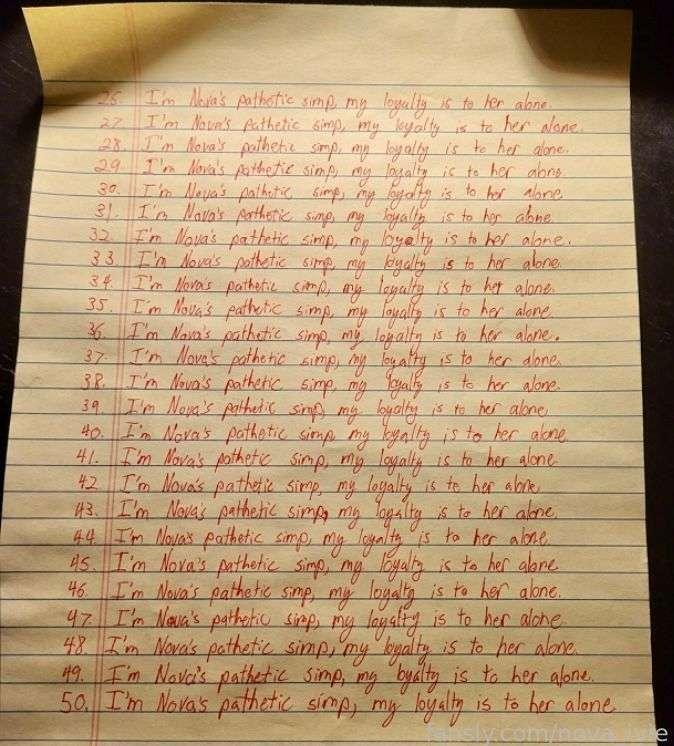 26. I'm Nova's pathetic simp, my loyalty is to her alone.
27. I'm Nova's pathetic simp, my loyalty is to her alone.
28. I'm Nova's pathetic simp, my loyalty is to her alone.
29. I'm Nova's pathetic simp, my loyalty is to her alone.
30. I'm Nova's pathetic simp, my loyalty is to her alone
31. I'm Nova's pathetic simp, my loyalty is to her alone
32. I'm Nova's pathetic simp, my loyalty is to her alone.
33. I'm Nova's pathetic simp, my loyalty is to her alone.
34. I'm Nova's pathetic simp, my loyalty is to her alone.
35. I'm Nova's pathetic simp, my loyalty is to her alone
36. I'm Nova's pathetic simp, my loyalty is to her alone.
37. I'm Nova's pathetic simp, my loyalty is to her alone.
38. I'm Nova's pathetic simp, my loyalty is to her alone.
39. I'm Nova's pathetic simp, my loyalty is to her alone,
40. I'm Nova's pathetic simp, my loyalty is to her alone.
41. I'm Nova's pathetic simp, my loyalty is to her alone.
42 I'm Nova's pathetic simp, my loyalty is to her alone,
43. I'm Nova's pathetic simp, my loyalty is to her alone.
44. I'm Nova's pathetic simp, my loyalty is to her alone.
45. I'm Nova's pathetic simp, my loyalty is to her alone
46. I'm Nova's pathetic simp, my loyalty is to her alone.
47. I'm Nova's pathetic simp, my loyalty is to her alone
48. I'm Nova's pathetic simp, my loyalty is to her alone.
49. I'm Nova's pathetic simp, my loyalty is to her alone.
50. I'm Nova's pathetic simp, my loyalty is to her alone